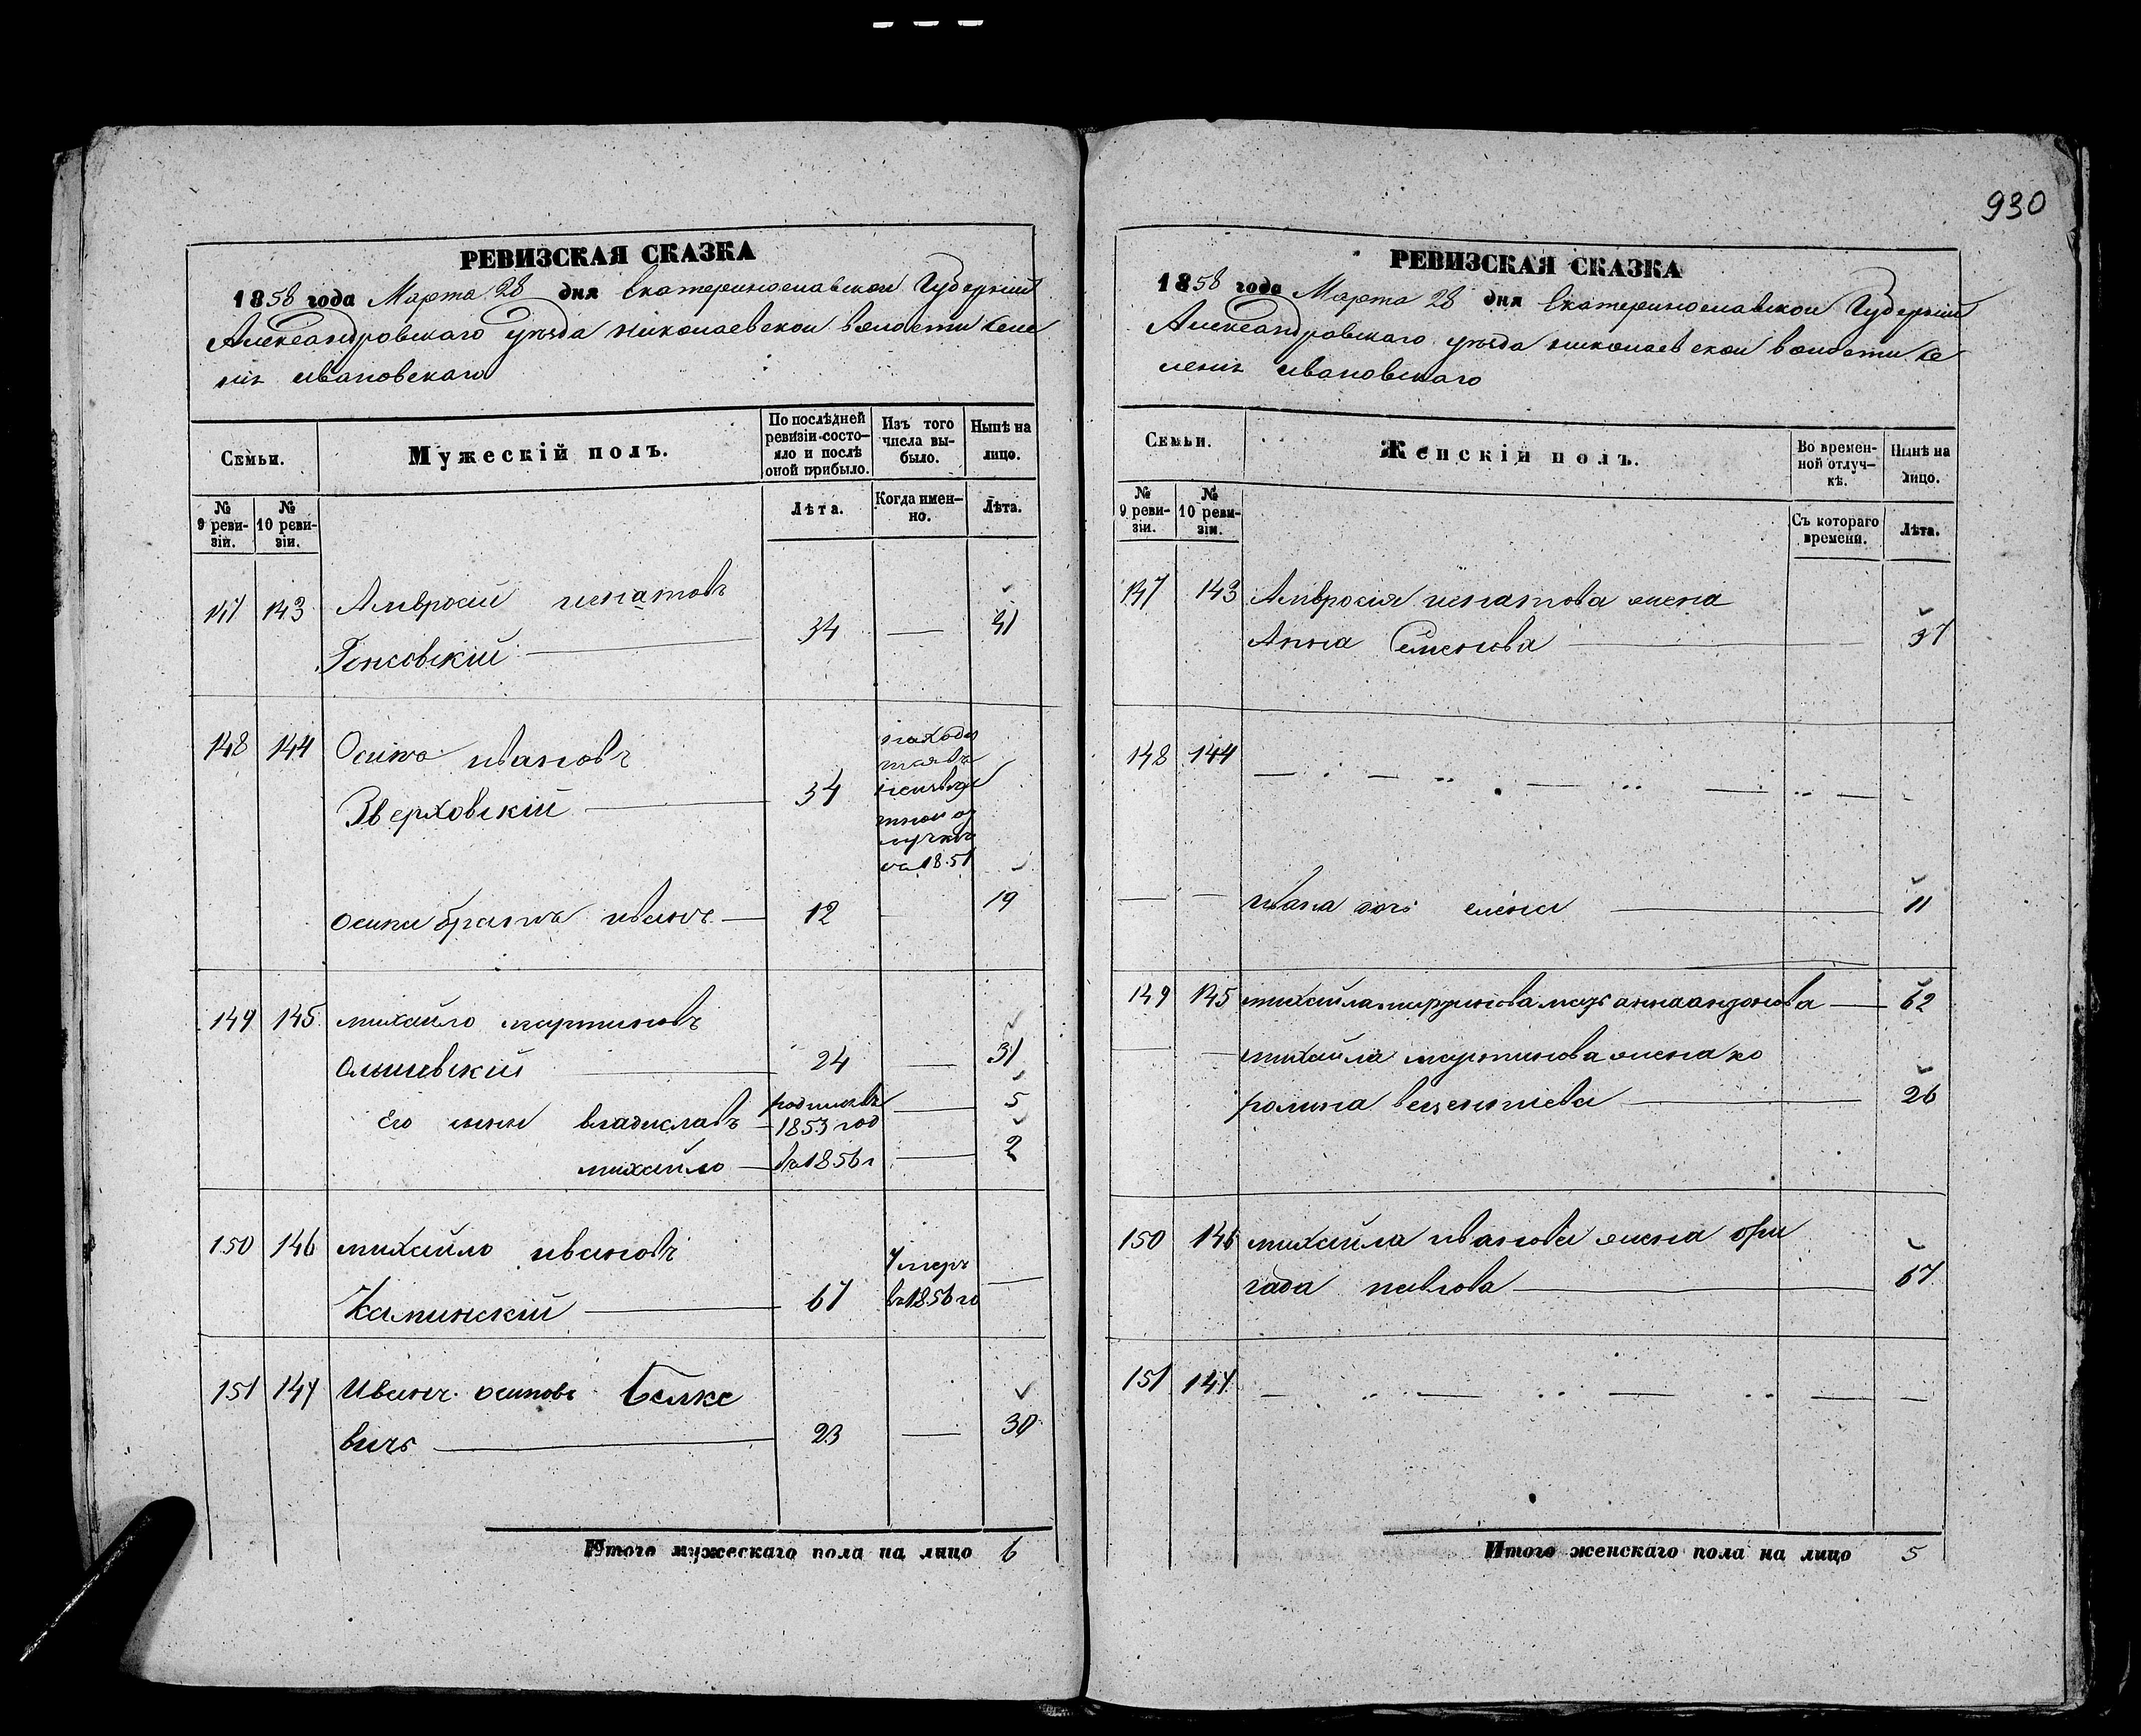 930
РЕВИЗСКАЯ СКАЗКА
1858 года Марта 28 дня Екатеринославской Губерніи
Александровскаго уѣзда николаевской волости Селе
нія ивановскаго
Семьи.
Мужескій полъ.
По послѣдней ревизіи состо-
яло и послѣ оной прибыло.
Изъ того числа вы-
было.
Нынѣ на лицо.
№ 9 реви-
зіи.
№ 10 реви-
зіи.
Лѣта.
Когда имен-
но.
Лѣта.
147 143 Амвросій игнатовъ
34 — 41
148 144 Осипъ ивановъ
Зверховскій — 34
находи
тся въ
неизвѣс
тной от
лучкѣ
съ 1851
осипа братъ иванъ — 12 — 19
149 145 михайло мартиновъ
Олшевскій — 24 — 31
Его сыны владиславъ — родился въ 1853 год — 5
михайло — въ 1856 г — 2
150 146 михайло ивановъ
Калинскій — 67 Умеръ въ 1856 го —
151 147 Иванъ осиповъ Белке
вичъ — 23 — 30
Итого мужескаго пола на лицо 6
РЕВИЗСКАЯ СКАЗКА
1858 года Марта 28 дня Екатеринославской Губерніи
Александровскаго уѣзда николаевской волости Се
ленія ивановскаго
Семьи.
Женскій полъ.
Во времен-
ной отлуч-
кѣ.
Нынѣ на лицо.
№ 9 реви-
зіи.
№ 10 реви-
зіи.
Съ котораго времени.
Лѣта.
147 143 Амвросія игнатова жена
Анна Семенова — 37
148 144
— — ивана дочь елена — 11
149 145 михайла мартинова мать анна андонова — 62
— — михайла мартинова жена ка
ролина — 26
150 146 михайла иванова жена бри
гада павлова — 67
151 147
Итого женскаго пола на лицо 5